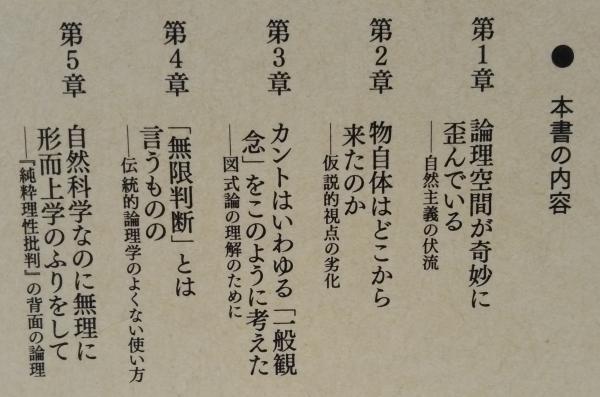 ● 本書の内容
第1章 論理空間が奇妙に
歪んでいる
──自然主義の伏流
第2章 物自体はどこから
来たのか
──仮説的視点の劣化
第3章 カントはいわゆる「一般観
念」をこのように考えた
──図式論の理解のために
第4章 「無限判断」とは
言うものの
──伝統的論理学のよくない使い方
第5章 自然科学なのに無理に
形而上学のふりをして
──『純粋理性批判』の背面の論理